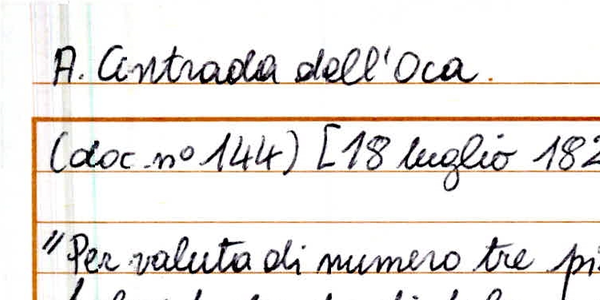 A. Contrada dell'Oca.
(doc. nº 144) [18 luglio 182
"Per valuta di numero tre pi